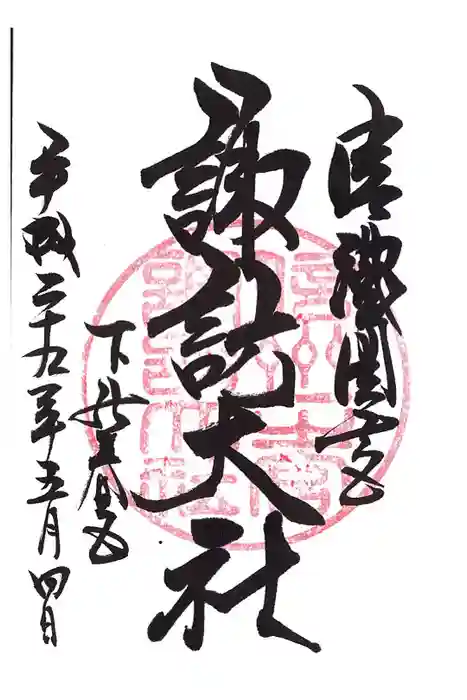 信濃國一宮
諏訪大社
下社春宮
平成二十九年五月四日